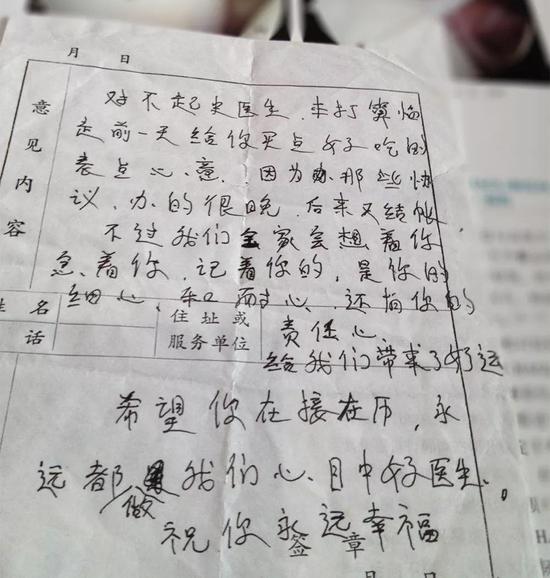 月 日
意见内容
对不起史医生,本打算临
走前一天给你买点好吃的
表点心意。因为办那些协
议,办的很晚,后来又结帐,
不过我们全家会想着你
念着你,记着你的,是你的
细心,和耐心,还有你的
姓名
话
住址或
服务单位
责任心
给我们带来了好运
希望你在接在历,永
远都做我们心目中好医生,
祝你永远幸福
签 章
月 日